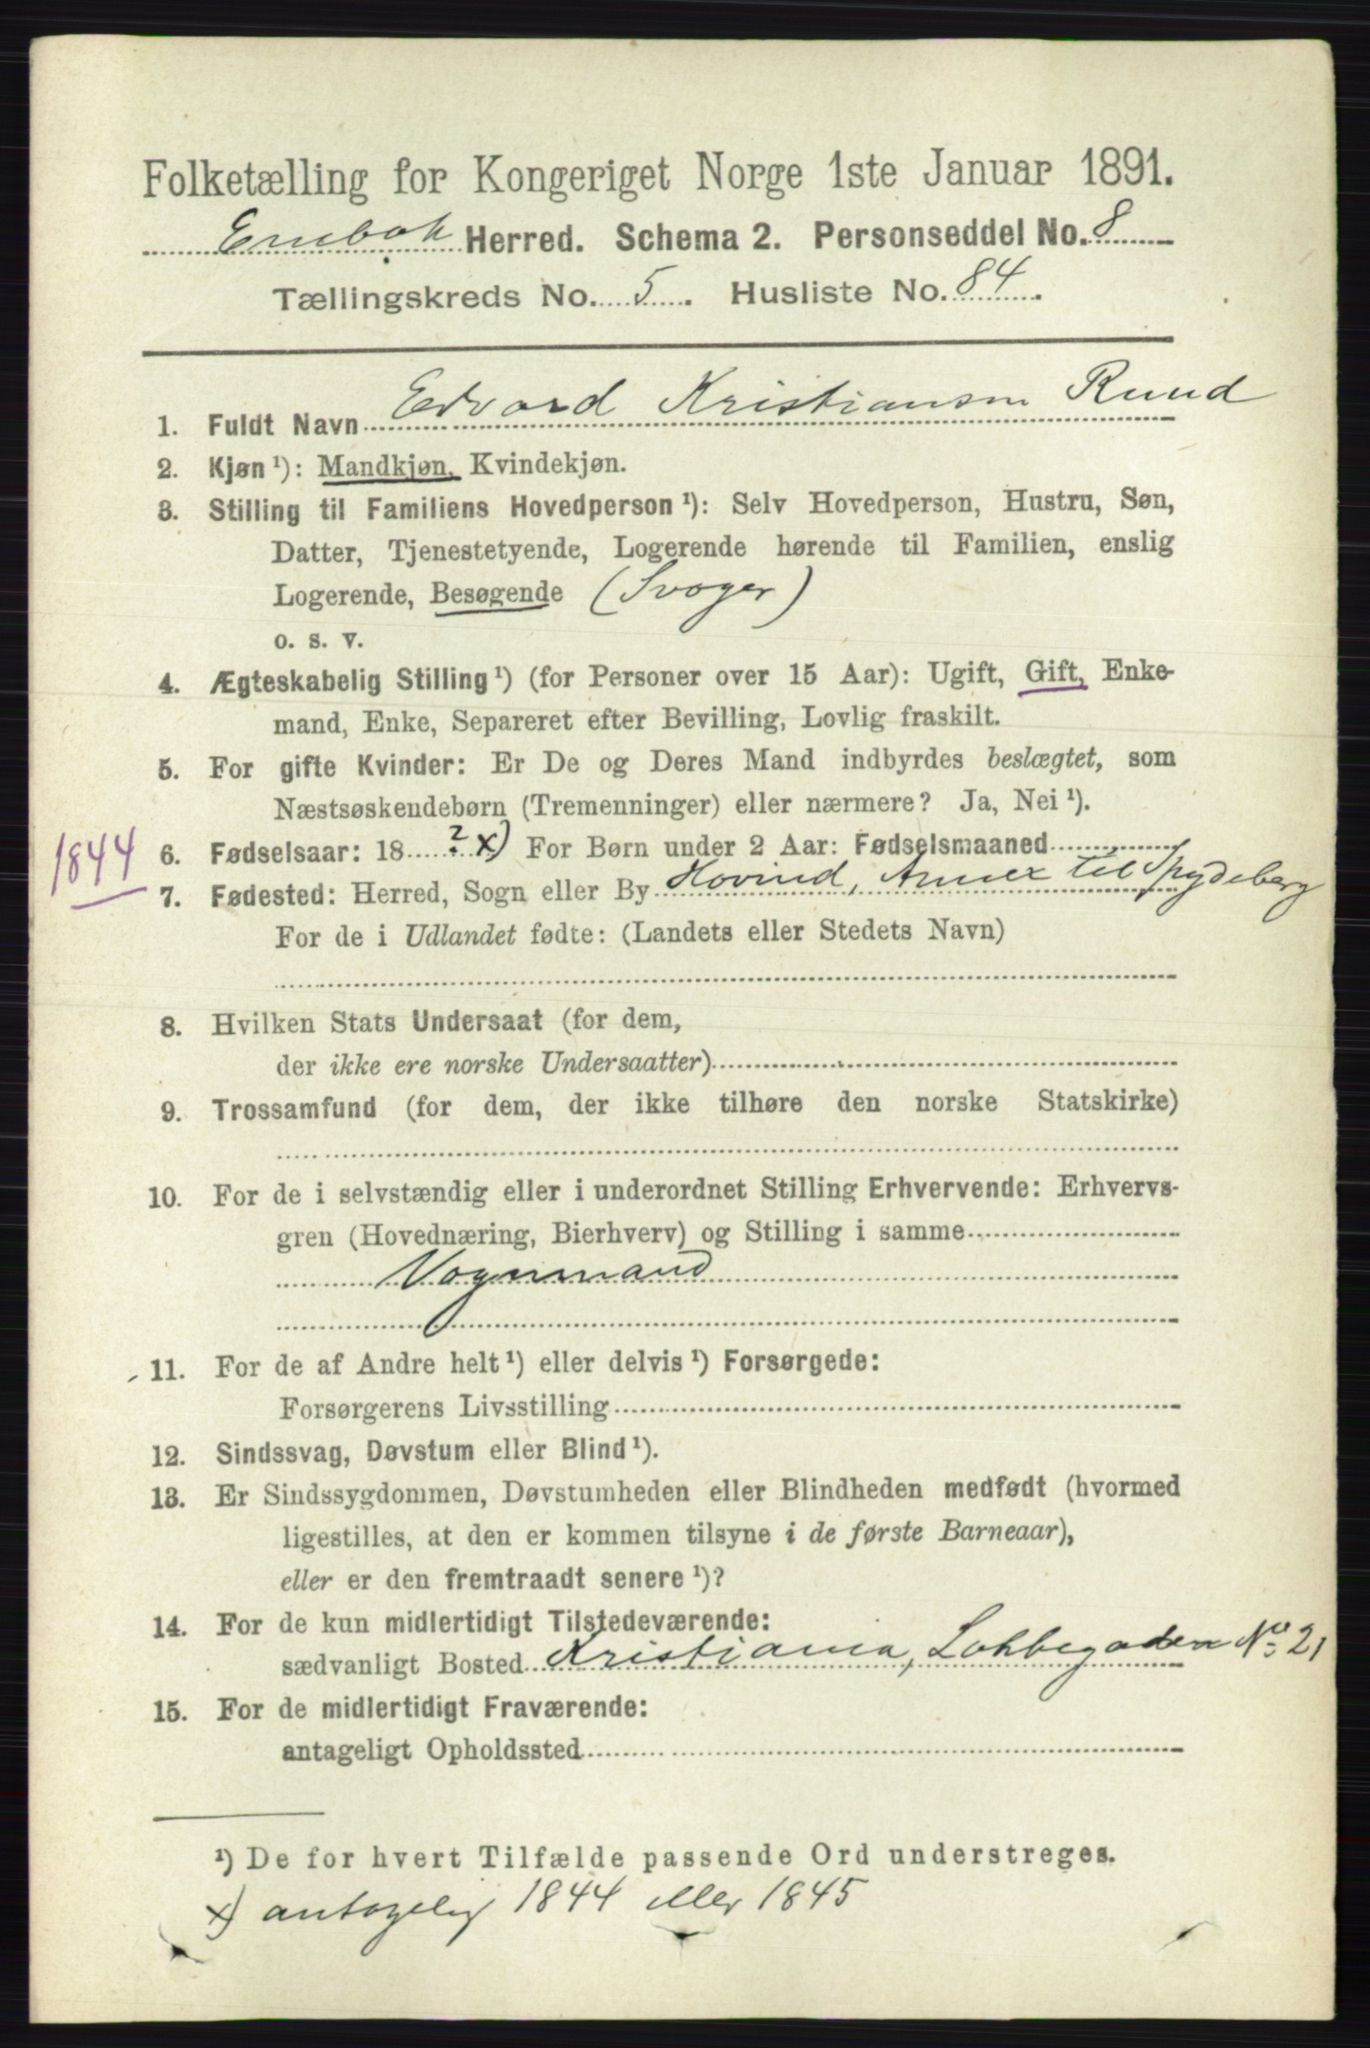 Folketælling for Kongeriget Norge 1ste Januar 1891.
Enebak Herred. Schema 2. Personseddel No. 8
Tællingskreds No. 5. Husliste No. 84.
1. Fuldt Navn Edvard Kristiansen Ruud
2. Kjøn ¹): Mandkjøn, Kvindekjøn.
3. Stilling til Familiens Hovedperson ¹): Selv Hovedperson, Hustru, Søn,
Datter, Tjenestetyende, Logerende hørende til Familien, enslig
Logerende, Besøgende (Svoger)
o. s. v.
4. Ægteskabelig Stilling ¹) (for Personer over 15 Aar): Ugift, Gift, Enke-
mand, Enke, Separeret efter Bevilling, Lovlig fraskilt.
5. For gifte Kvinder: Er De og Deres Mand indbyrdes beslægtet, som
Næstsøskendebørn (Tremenninger) eller nærmere? Ja, Nei ¹).
1844 6. Fødselsaar: 18 ? x) For Børn under 2 Aar: Fødselsmaaned
7. Fødested: Herred, Sogn eller By Hovind, Annex til Spydeberg
For de i Udlandet fødte: (Landets eller Stedets Navn)
8. Hvilken Stats Undersaat (for dem,
der ikke ere norske Undersaatter)
9. Trossamfund (for dem, der ikke tilhøre den norske Statskirke)
10. For de i selvstændig eller i underordnet Stilling Erhvervende: Erhvervs-
gren (Hovednæring, Bierhverv) og Stilling i samme
Vognmand
11. For de af Andre helt ¹) eller delvis ¹) Forsørgede:
Forsørgerens Livsstilling
12. Sindssvag, Døvstum eller Blind ¹).
13. Er Sindssygdommen, Døvstumheden eller Blindheden medfødt (hvormed
ligestilles, at den er kommen tilsyne i de første Barneaar),
eller er den fremtraadt senere ¹)?
14. For de kun midlertidigt Tilstedeværende:
sædvanligt Bosted Kristiania, Lakkegaden No 21
15. For de midlertidigt Fraværende:
antageligt Opholdssted
¹) De for hvert Tilfælde passende Ord understreges.
x) antagelig 1844 eller 1845